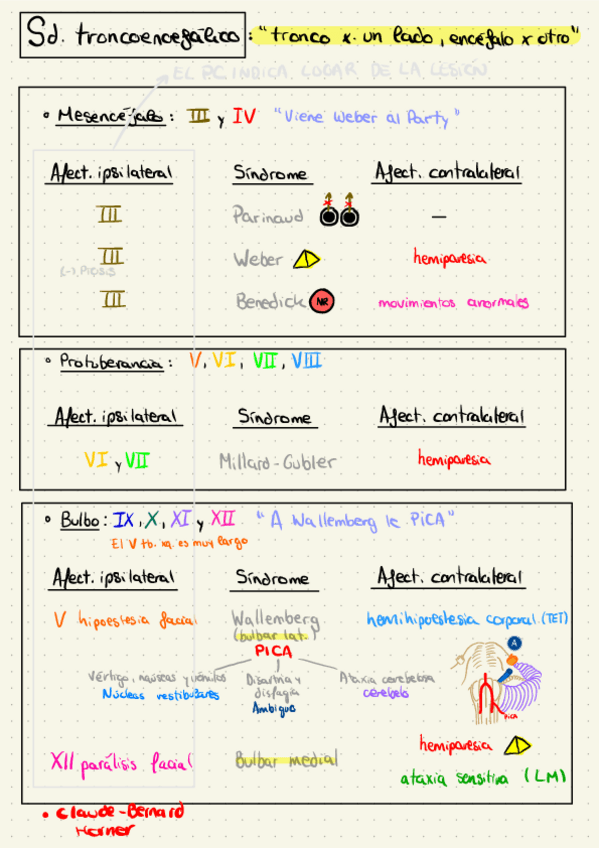 Sd. troncoencefálico: "tronco x un lado, encéfalo x otro"
EL PC INDICA LUGAR DE LA LESIÓN
• Mesencéfalo: III y IV "Viene Weber al Party"
Afect. ipsilateral Síndrome Afect. contralateral
III Parinaud —
III Weber hemiparesia
(-) Ptosis
III Benedick NR movimientos anormales
• Protuberancia: V, VI, VII, VIII
Afect. ipsilateral Síndrome Afect. contralateral
VI y VII Millard-Gubler hemiparesia
• Bulbo: IX, X, XI y XII "A Wallemberg le PICA"
El V tb. xq. es muy largo
Afect. ipsilateral Síndrome Afect. contralateral
V hipoestesia facial Wallemberg hemihipoestesia corporal (TET)
(bulbar lat.)
PICA
A
Vértigo, náuseas y vómitos Disartria y Ataxia cerebelosa
Núcleos vestibulares disfagia cerebelo
Ambiguo
PICA
hemiparesia
XII parálisis facial Bulbar medial
ataxia sensitiva (LM)
• Claude-Bernard
Horner